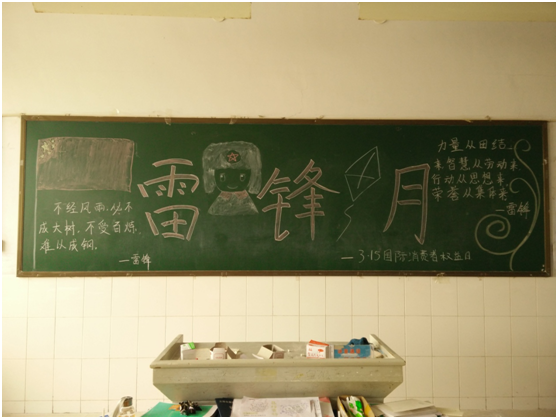 雷锋月
不经风雨,长不
成大树,不受百炼,
难以成钢。
—雷锋
力量从团结
来智慧从劳动来
行动从思想来
荣誉从集体来
—雷锋
—3·15国际消费者权益日